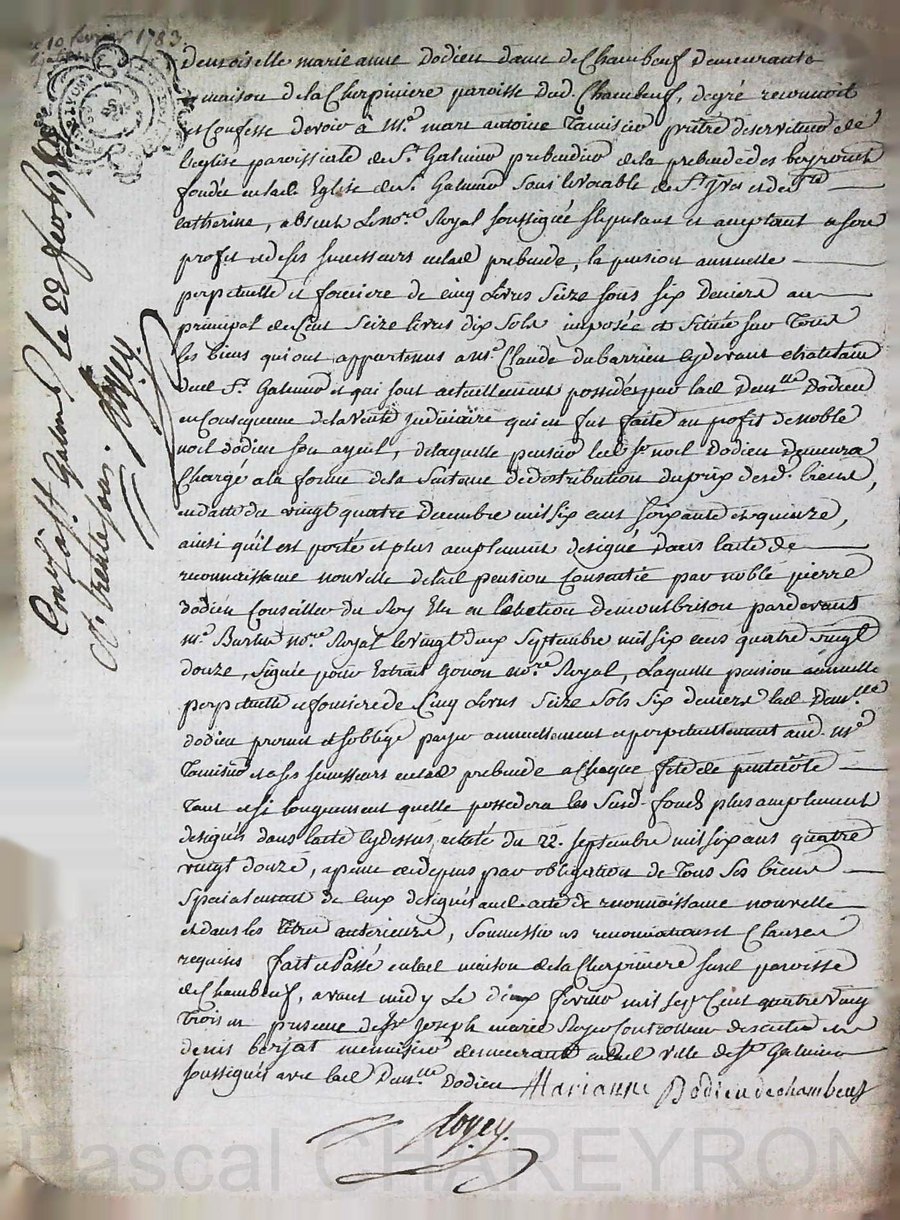 10 fevrier 1783
demoiselle marie anne Dodieu dame de Chambeuf demeurante
maison de la Cherpiniere paroisse dud. Chambeuf, degré reconnoit
et Confesse devoir à Me. marc antoine Tamisier prêtre deserviteur de
leglise paroissiale de St. Galmier prebendier de la prebende des
fondée enlad. Eglise de St. Galmier sous le vocable de St. yves et de Ste
catherine, absent Le nore. Royal soussigné stipulant et aceptant a son
profit et de ses successeurs enlad prebende, la pension annuelle
perpetuelle et fonciere de cinq Livres Seize sous six deniers au
principal de Cent Seize livres dix Sols imposée et Située sur Tous
les biens qui ont appartenus a mr. Claude dubarrieu cydevant chatelain
dud St. Galmier et qui sont actuellement possédés par lad Demlle Dodieu
en Consequence de la Vente judiciaire qui en fut faite au profit de noble
noel dodieu son ayeul, de laquelle pension led. sr noel Dodieu Demeura
Chargé a la forme de la Sentence de distribution du prix desd. biens,
en datte du vingt quatre Decembre mil six cent soixante et quinze,
ainsi qu'il est porté et plus amplement designé dans l'acte de
reconnaissance nouvelle de lad pension Consentie par noble pierre
Dodieu Conseiller du Roy Elu en l'election de montbrison pardevant
me. nore Royal le vingt deux Septembre mil six cens quatre vingt
douze, signée pour Extrait Gonon nore. Royal, Laquelle pension annuelle
perpetuelle et fonciere de Cinq Livres Seize Sols Six deniers lad Demlle
dodieu promet et s'oblige payer annuellement et perpetuellement aud. me
Tamisier et a ses successeurs enlad prebende a Chaque fête de pentecôte
Tant et si longuement quelle possedera les Susd. fonds plus amplement
designés dans l'acte cydessus relaté du 22. septembre mil six cens quatre
vingt douze, a peine de depens par obligation de Tous Ses biens
Specialement de ceux designés aud acte de reconnoissance nouvelle
et dans les Titres anterieurs, Soumissions renonciations et Clauses
requises fait et Passé enlad maison de la Cherpiniere susd paroisse
de Chambeuf, avant midy Le dixe fevrier mil sept Cent quatre vingt
Trois en presence de Sr. Joseph marie Royer Controlleur des actes et
denis berjat menuisier demeurant enlad ville de St Galmier
soussignés avec lad Demlle Dodieu Marianne Dodieu de chambeuf
Royer.
Conlé a St Galmier le 22 fevr. 1783
R. trente sous. Royer
Pascal CHAREYRON